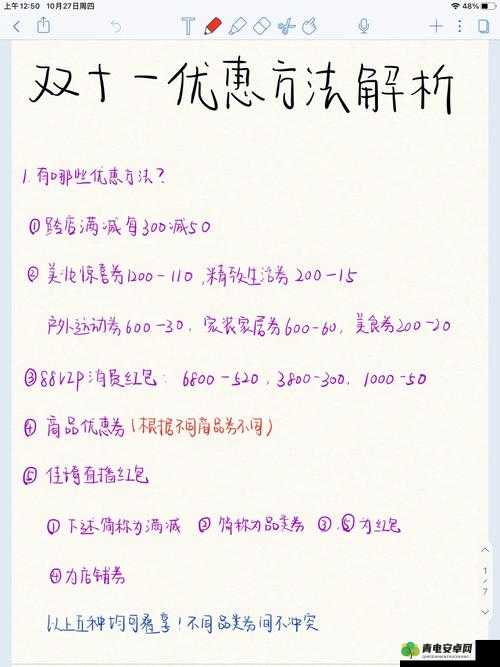 上午12:50 10月27日周四 48%
T
双十一优惠方法解析
1.有哪些优惠方法?
①跨店满减每300减50
②美妆惊喜券1200-110,精致生活券200-15
户外运动券600-30,家装家居券600-60,美食券200-20
③88VIP消费红包:6800-520,3800-300,1000-50
④商品优惠券(根据不同商品券不同)
⑤佳琦直播红包
①下述简称为满减 ②简称为品类券 ③.⑤为红包
④为店铺券
以上五种均可叠享!不同品类券间不冲突
1
/
7
青电安卓网